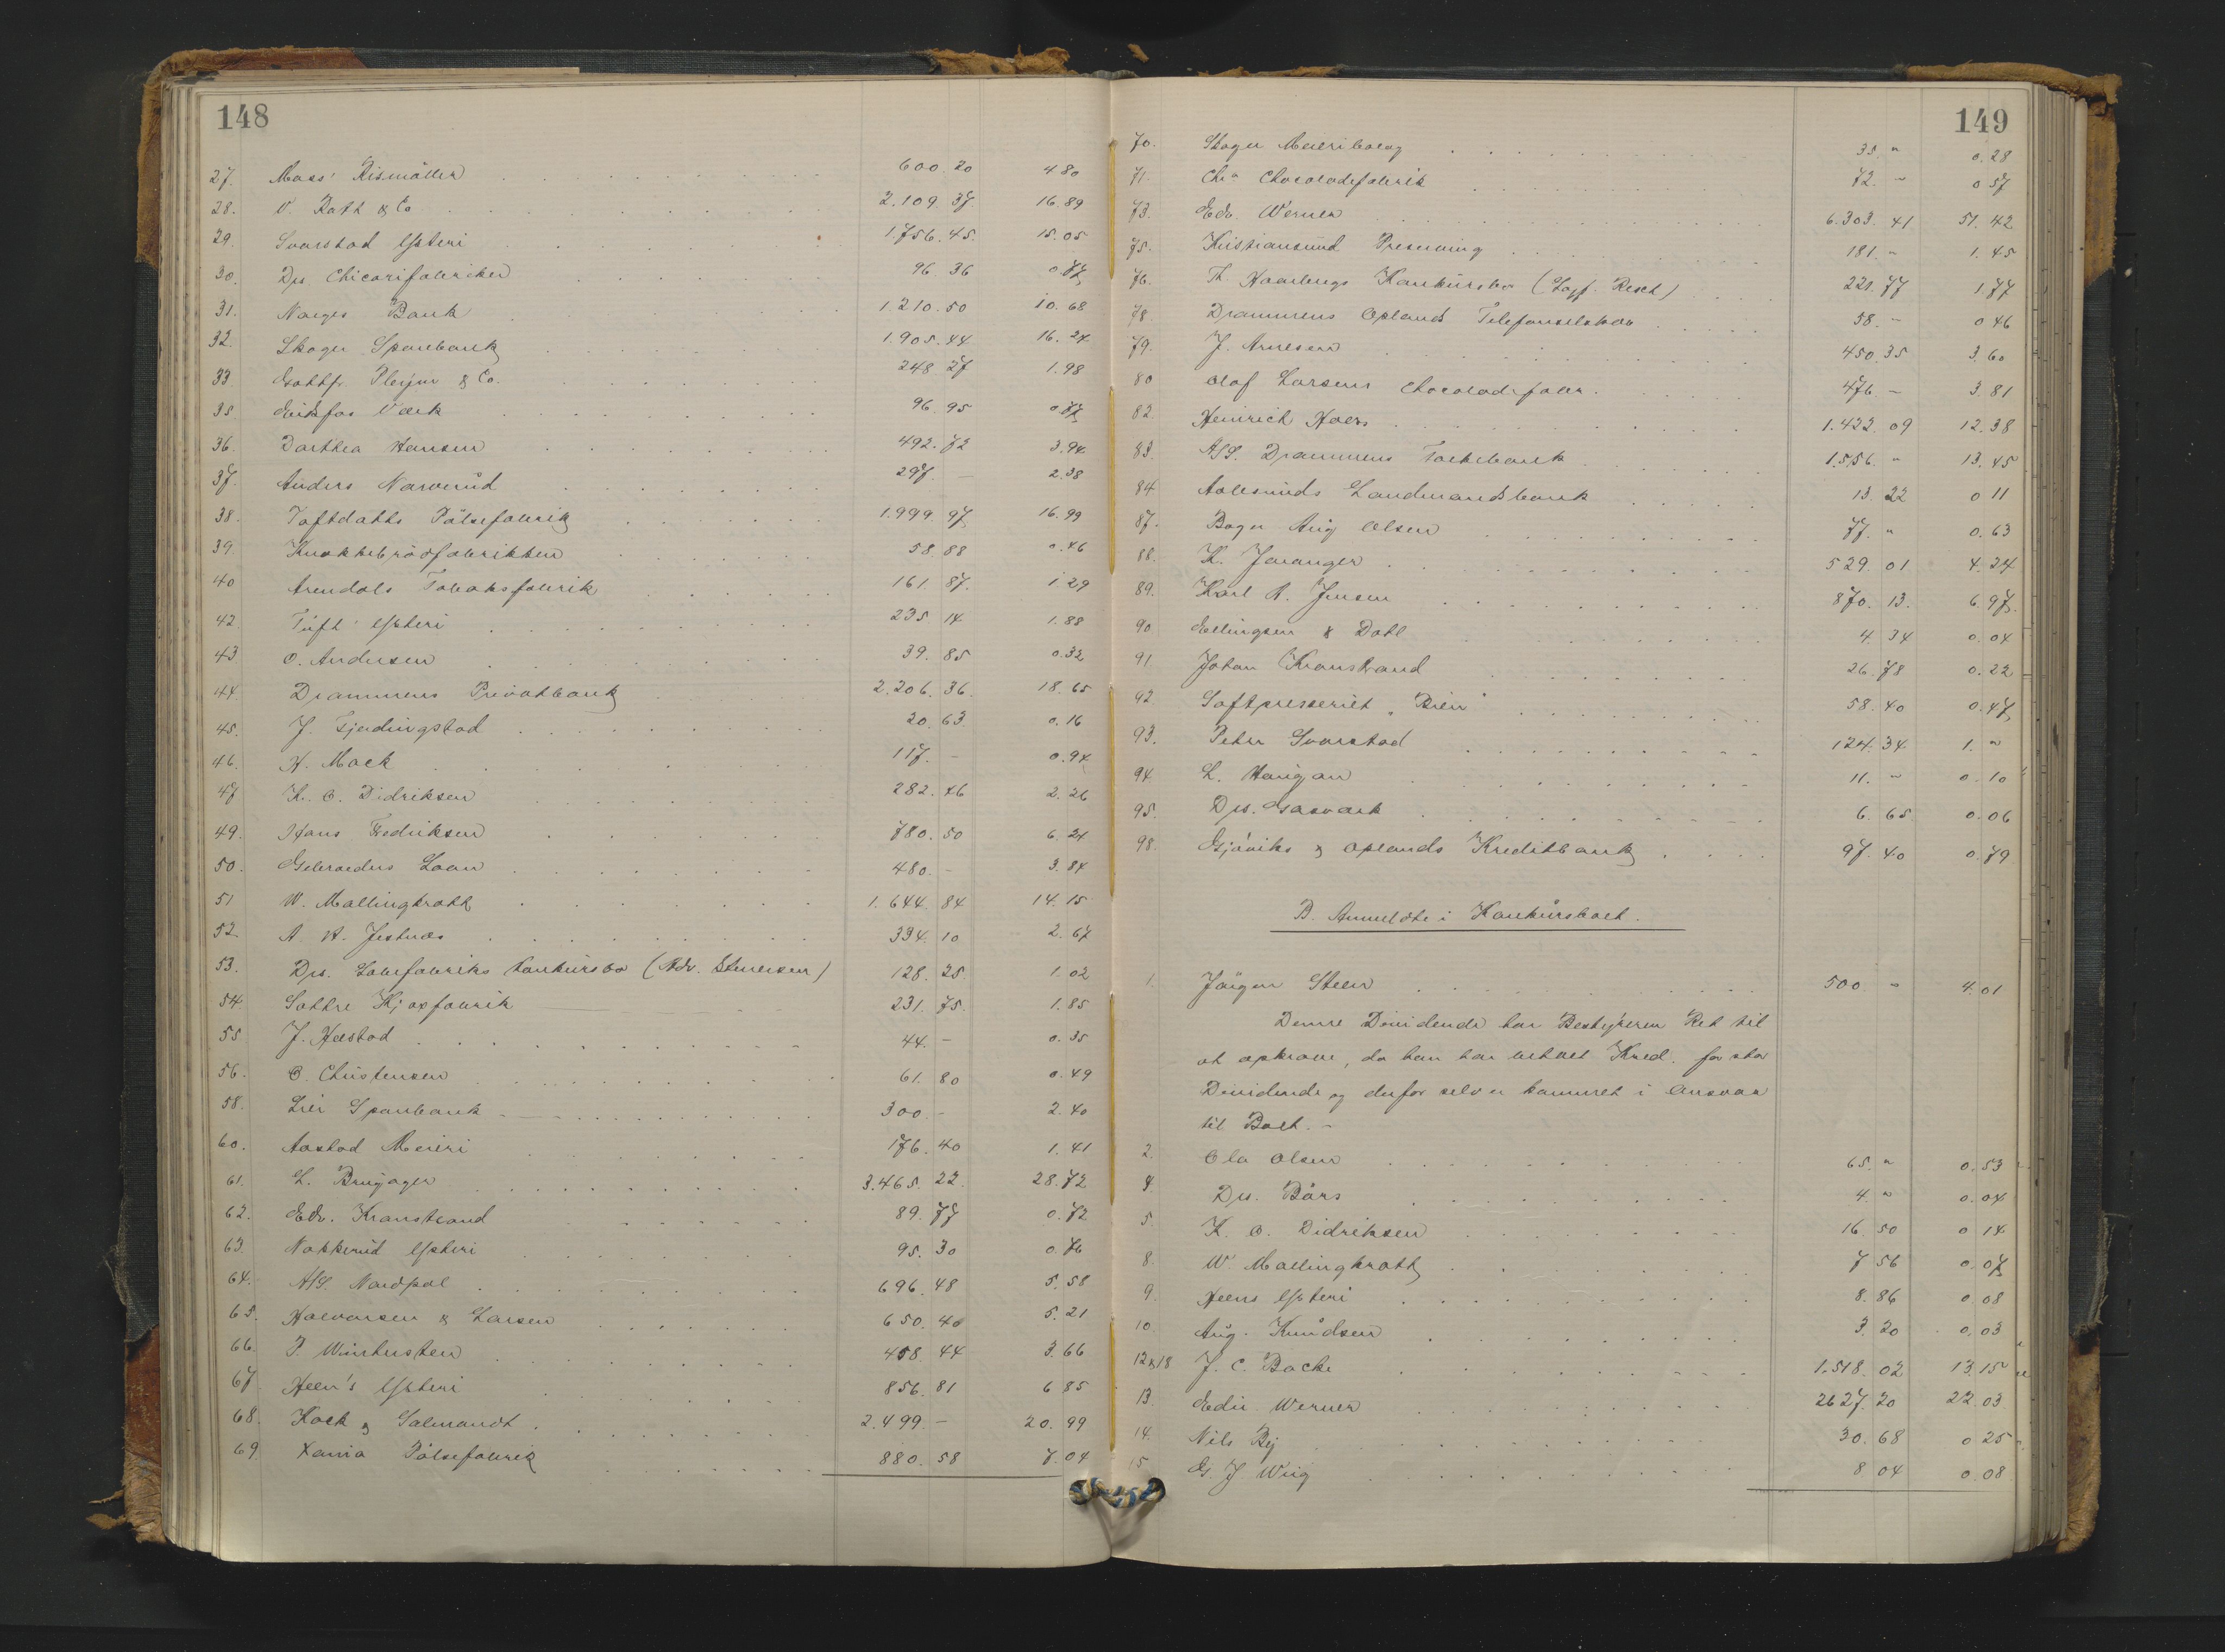 148
27. Moss' Rismöller 600.20 4.80
28. V. Roth & Co 2.109.37 16.89
29. Svarstad Ysteri 1.756.45. 15.05
30. Drs. Chicorifabrikker 96.36 0.77
31. Norges Bank 1.210.50 10.68
32. Skoger Sparebank 1.905.44 16.24
33 Gottfr. Pleym & Co. 248 27 1.98
35. Eikfos Værk 96.95 0.77
36. Dorthea Hansen 492.72 3.94
37. Anders Narverud 297.— 2.38
38. Toftdahls Pölsefabrik 1.999 97 16.99
39. Knækkebrödfabrikken 58.88 0.46
40 Arendals Tobaksfabrik 161.87. 1 29
42. Tuft Ysteri 235.14 1.88
43 O. Andersen 39.85 0.32
44. Drammens Privatbank 2.206.36. 18.65
45. J. Fjerdingstad 20.63 0.16
46. H. Mack 117.— 0.94
47 K. O. Didriksen 282.46 2.26
49. Hans Fredriksen 780.50 6.24
50. Gulbrand Loan 480.- 3.84
51 W. Mallingkrott 1.644.84 14.15
52. A. H. Jestnæs 334.10 2.67
53. Drs. Lærfabriks Konkursbo (Adv. Stenersen) 128.25. 1.02
54. Sætre Kjæxfabrik 231.75. 1.85
55 J. Hæstad 44.- 0.35
56. O. Christensen 61.80 0.49
58. Lier Sparebank 300.- 2.40
60. Aastad Meieri 176.40 1.41
61. L. Brujager 3.465.22. 28.72
62. Edv. Kranstrand 89.77 0.72
63. Nakkerud Ysteri 95.30 0.76
64. A/S. Nordpol 696.48 5.58
65. Halvorsen & Larsen 650.40 5.21
66. P. Winterstien 458.44 3.66
67 Heen's Ysteri 856.81 6 85
68. Kock & Salmandt 2.499.- 20.99
69. Xania Pölsefabrik 880.58 7.04
149
70. Skoger Meieribolag 35 " 0.28
71. Chra Chocoladefabrik 72.- 0 57
73. Edv. Werner 6.303.41 51.42
75. Kristiansund Preserving 181." 1.45
76. Th. Haarbergs Konkursbo (Sagf. Resch) 221.77 1.77
78. Drammens Oplands Telefonselskab 58.- 0 46
79. J. Arnesen 450.35 3.60
80 Olof Larsens Chocoladefabr. 476.- 3.81
82. Heinrich Hoers 1.422.09 12.38
83. A/S. Drammens Folkebank 1.556. " 13.45
84 Aalesunds Landmandsbank 13.22 0 11
87. Bager Aug Olsen 77. " 0.63
88. K. Joranger 529.01 4.24
89. Karl A. Jensen 870.13. 6.97
90 Ellingsen & Dahl 4 34 0.04
91. Johan Kranstrand 26.78 0.22
92. Saftpresseriet "Bien" 58.40 0.47
93. Peter Svarstad 124.34. 1. "
94 L. Haugan 11. " 0.10
95. Drs. Gasværk 6.65 0.06
98. Gjøviks & Oplands Kreditbank 97.40 0.79
B. Anmeldte i Konkursboet.
1. Jörgen Steen 500 - 4.01
Denne Dividende har Bestyreren Ret til
at opkræve, da han har utbet Kred. for stor
Dividende og derfor selv er kommet i Ansvar
til Boet.-
2. Ola Olsen 65." 0.53
4. Drs. Börs 4. " 0.04
5. K. O. Didriksen 16.50 0 14
8. W. Mallingkrott 7 56 0.07
9. Heens Ysteri 8.86 0.08
10. Aug. Knudsen 3.20 0.03
12 & 18 J. C. Backe 1.518.02 13.15
13. Edv. Werner 2627.20 22.03
14. Nils By 30.68 0 25
15 G. J. Wiig 8 04 0.08